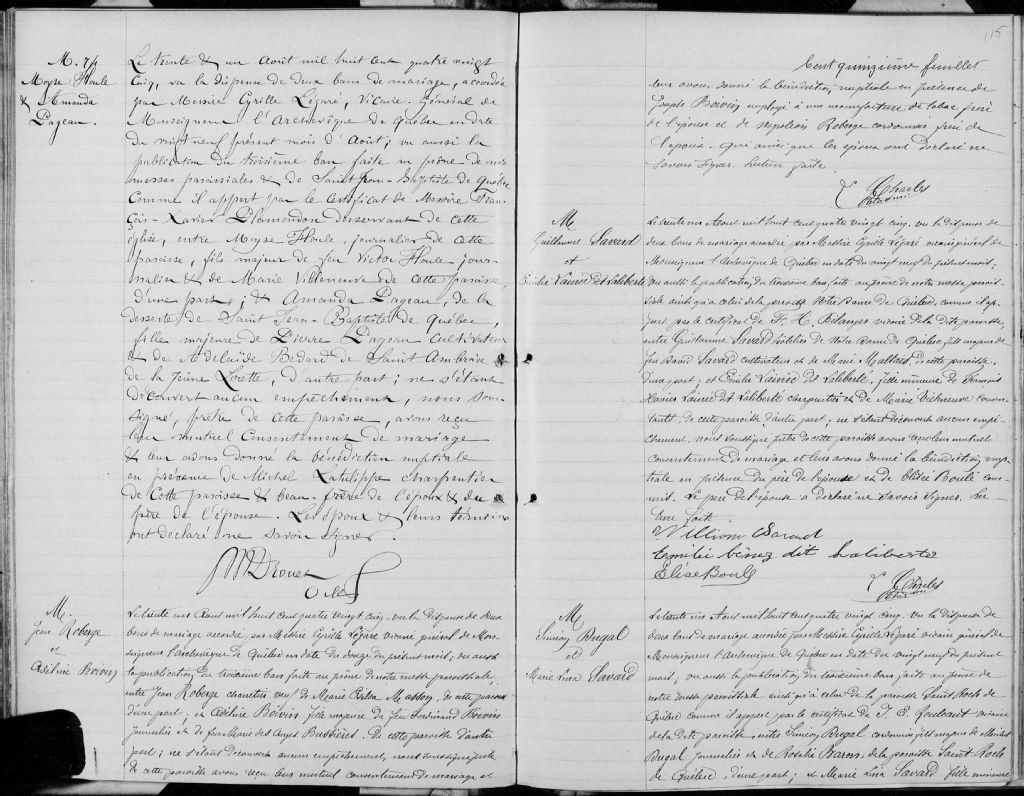 M. 74
Moyse Houle
& Amanda
Pageau.
Le trente & un Août mil huit cent quatre vingt
cinq, vu la dispense de deux bans de mariage, accordée
par Messire Cyrille Légaré, Vicaire Général de
Monseigneur l'Archevêque de Québec en date
du vingt neuf présent mois d'Août; vu aussi la
publication du troisième ban faite au prône de nos
messes paroissiales & de Saint Jean-Baptiste de Québec
comme il appert par le certificat de Messire Fran-
çois-Xavier Plamondon desservant de cette
église, entre Moyse Houle, journalier de cette
paroisse, fils majeur de feu Victor Houle jour-
nalier & de Marie Villeneuve de cette paroisse,
d'une part; & Amanda Pageau, de la
desserte de Saint Jean-Baptiste de Québec,
fille majeure de Pierre Pageau cultivateur
& de Adelaïde Bedard de Saint Ambroise
de la Jeune Lorette, d'autre part; ne s'étant
découvert aucun empêchement, nous sous-
signé, prêtre de cette paroisse, avons reçu
leur mutuel consentement de mariage
& leur avons donné la bénédiction nuptiale
en présence de Michel Latulippe charpentier
de cette paroisse & beau-frère de l'époux & du
père de l'épouse. Les époux & leurs témoins
ont déclaré ne savoir signer.
Drouet
M.
Jean Roberge
et
Adéline Boivin
Le trente un Août mil huit cent quatre vingt cinq, vu la dispense de deux
bans de mariage accordée par Messire Cyrille Légaré vicaire général de Mon-
seigneur l'Archevêque de Québec en date du douze du présent mois, vu aussi
la publication du troisième ban faite au prône de notre messe paroissiale,
entre Jean Roberge charretier veuf de Marie Masson, de cette paroisse
d'une part; et Adéline Boivin fille majeure de feu Ferdinand Boivin
journalier et de feu Marie des Anges Bussières de cette paroisse d'autre
part; ne s'étant découvert aucun empêchement, nous soussigné prêtre
de cette paroisse avons reçu leur mutuel consentement de mariage et
115
Cent quinzième feuillet
leur avons donné la bénédiction nuptiale en présence de
Joseph Boivin employé à une manufacture de tabac frère
de l'épouse et de Napoléon Roberge cordonnier frère de
l'époux. Qui ainsi que les époux ont déclaré ne
savoir signer. Lecture faite
Charles
M
Guillaume Savard
et
Emilie Vainée dit Laliberté
Le trente un Août mil huit cent quatre vingt cinq, vu la dispense de
deux bans de mariage accordée par Messire Cyrille Légaré vicaire général de
Monseigneur l'Archevêque de Québec en date du vingt neuf du présent mois;
vu aussi la publication du troisième ban faite au prône de notre messe parois-
siale ainsi qu'à celui de la paroisse Notre Dame de Québec, comme il ap-
pert par le certificat de F. H. Bélanger vicaire de la dite paroisse,
entre Guillaume Savard de Notre Dame de Québec fils majeur de
feu David Savard cultivateur et de Marie Mathieu de cette paroisse,
d'une part; et Emilie Vainée dit Laliberté, fille mineure de François
Xavier Vainée dit Laliberté charpentier et de Marie Villeneuve consen-
tants, de cette paroisse d'autre part; ne s'étant découvert aucun empê-
chement, nous soussigné prêtre de cette paroisse avons reçu leur mutuel
consentement de mariage et leur avons donné la bénédiction nup-
tiale en présence du père de l'épouse et de Elisée Boulé com-
mis. Le père de l'épouse a déclaré ne savoir signer. Lec-
ture faite.
William Savard
Emilie bênez dit Laliberté
Elise Boulé
Charles
M
Siméon Bugal
et
Marie Lina Savard
Le trente un Août mil huit cent quatre vingt cinq, vu la dispense de
deux bans de mariage accordée par Messire Cyrille Légaré vicaire général de
Monseigneur l'Archevêque de Québec en date du vingt neuf du présent
mois, vu aussi la publication du troisième ban faite au prône de
notre messe paroissiale ainsi qu'à celui de la paroisse Saint Roch de
Québec comme il appert par le certificat de vicaire
de la dite paroisse, entre Siméon Bugal cordonnier fils majeur de
Bugal journalier et de Rosalie Barons, de la paroisse Saint Roch
de Québec, d'une part; et Marie Lina Savard fille mineure